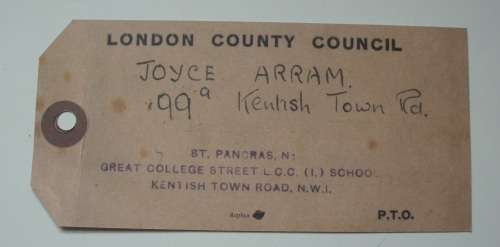 LONDON COUNTY COUNCIL
JOYCE ARRAM.
99ª Kentish Town Rd.
ST. PANCRAS, N:
GREAT COLLEGE STREET L.C.C. (I.) SCHOOL
KENTISH TOWN ROAD, N.W.I.
P.T.O.